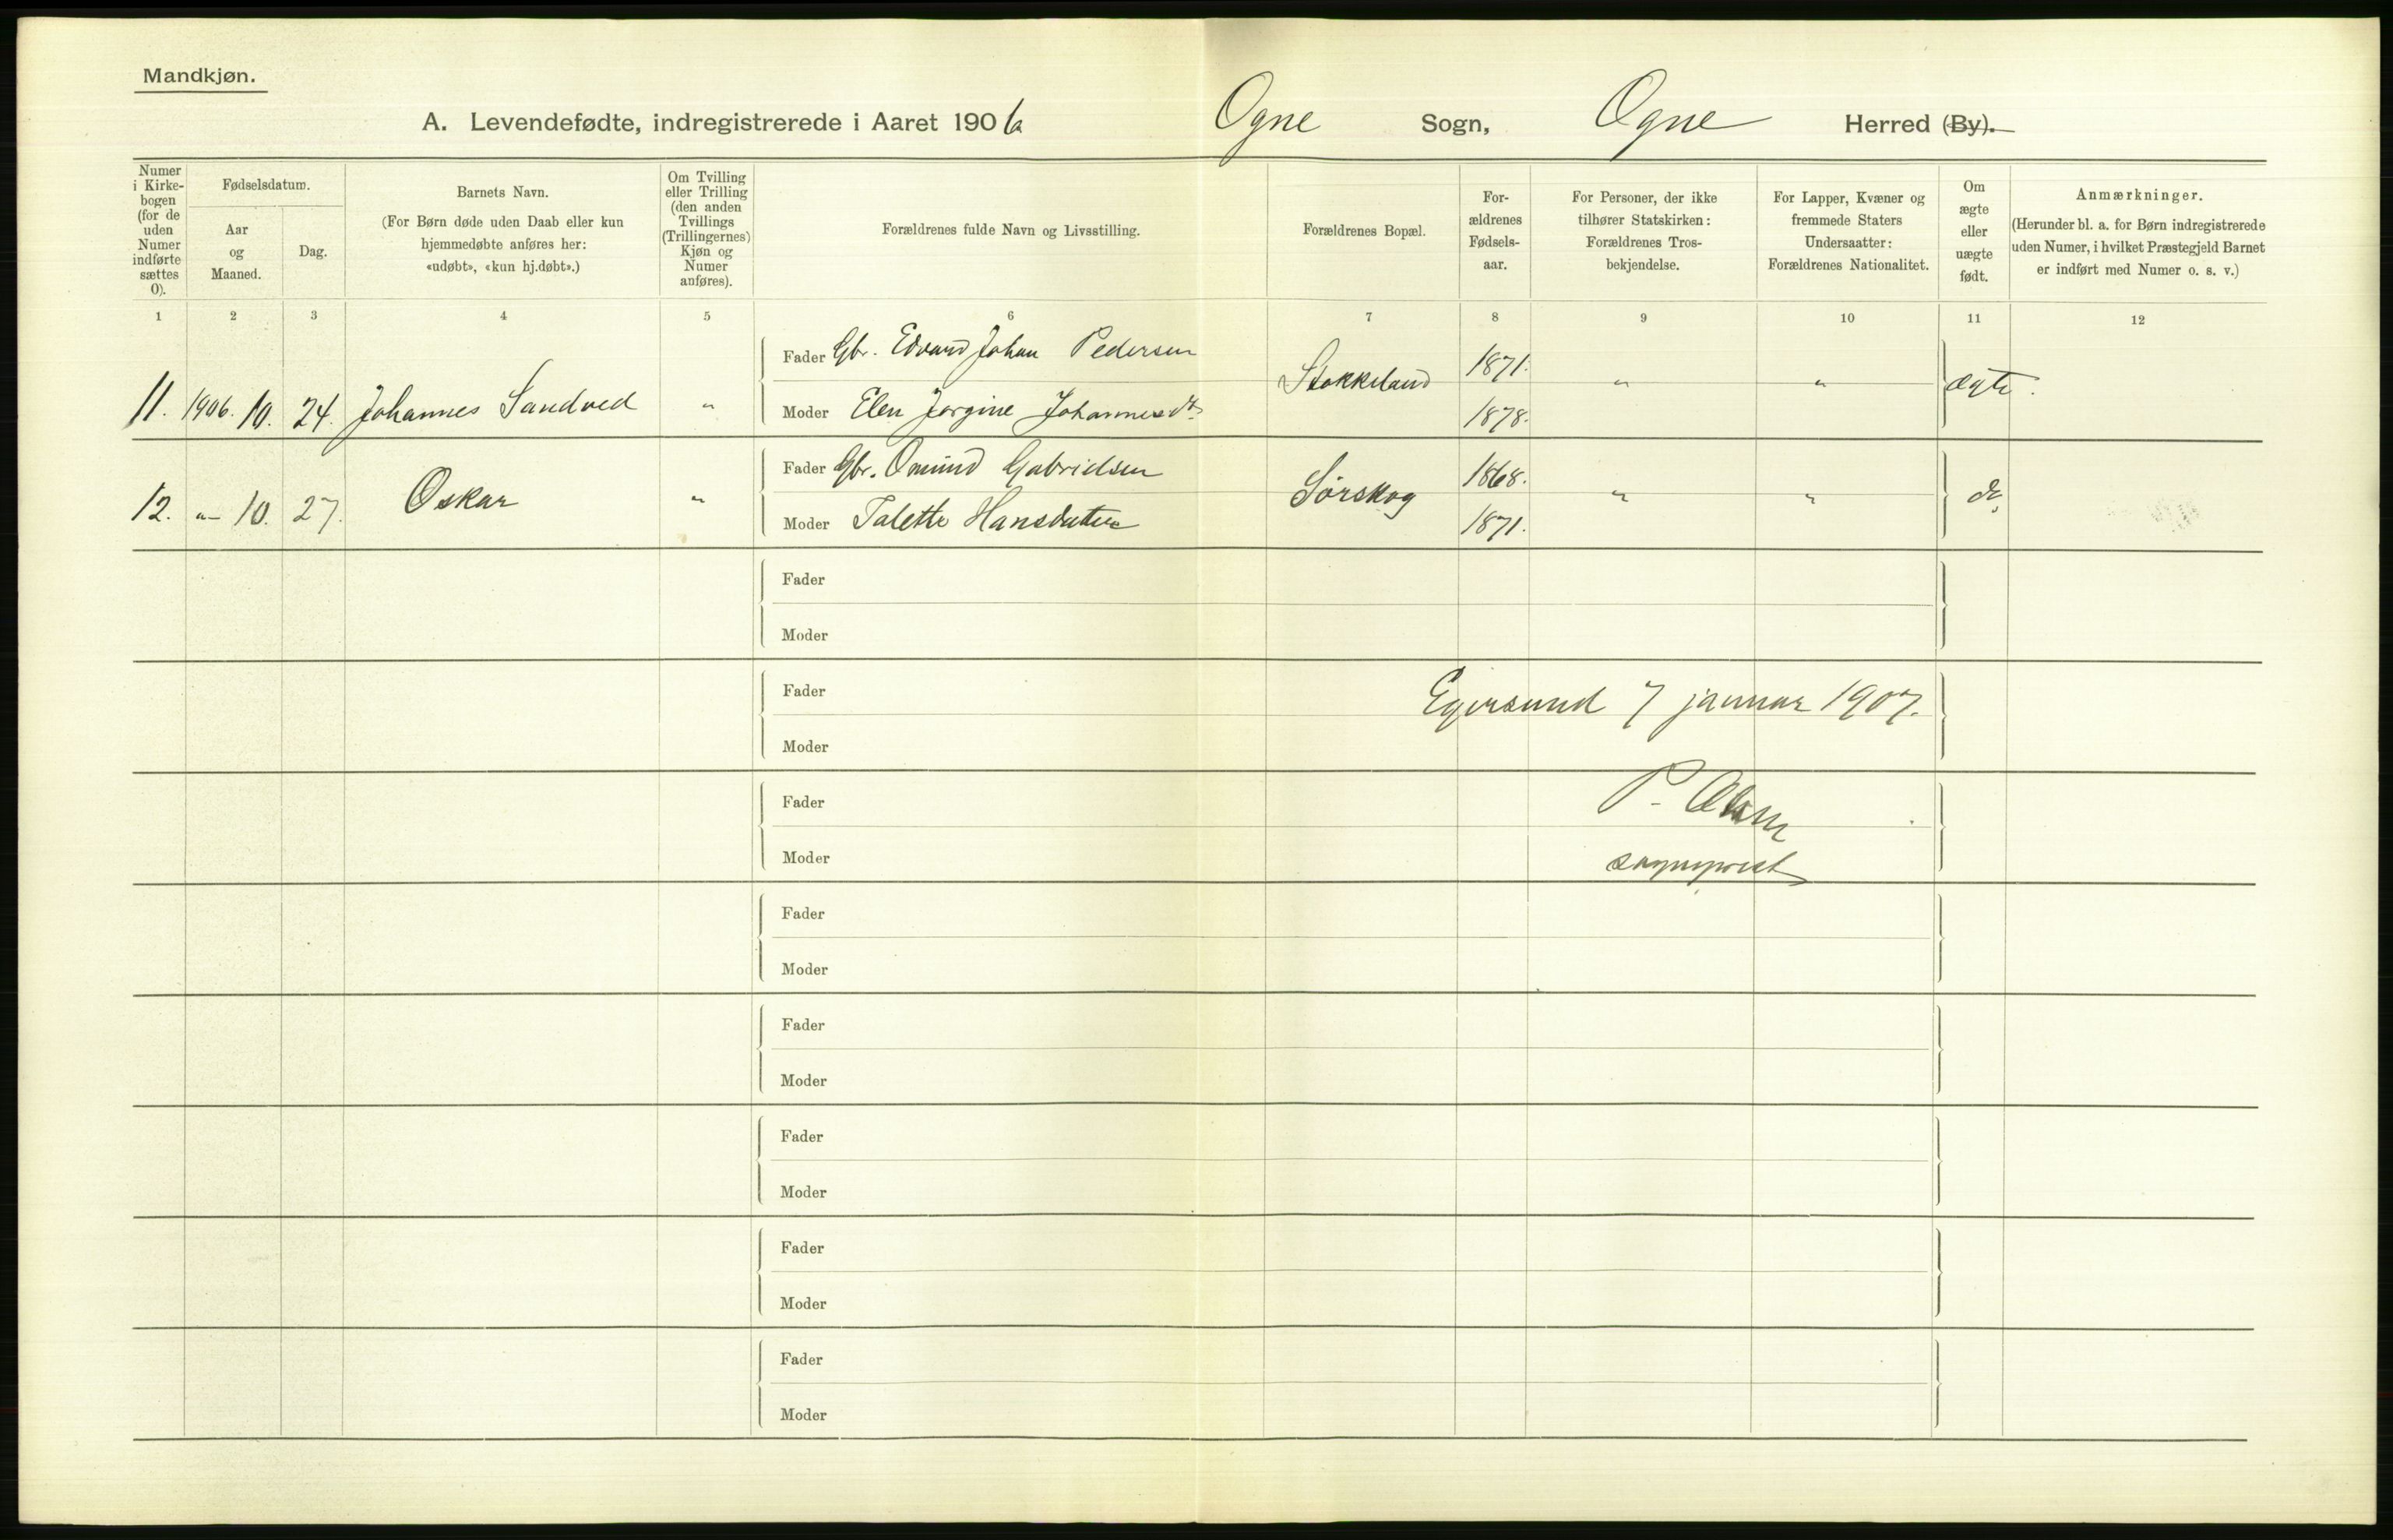 Mandkjøn.
A. Levendefødte, indregistrerede i Aaret 1906 Ogne Sogn, Ogne Herred (By).
Numer i Kirkebogen (for de uden Numer indførte sættes 0).
Fødselsdatum.
Aar og Maaned.
Dag.
Barnets Navn.
(For Børn døde uden Daab eller kun
hjemmedøbte anføres her:
«udøbt», «kun hj.døbt».)
Om Tvilling
eller Trilling
(den anden
Tvillings
(Trillingernes)
Kjøn og
Numer
anføres).
Forældrenes fulde Navn og Livsstilling.
Forældrenes Bopæl.
For-
ældrenes
Fødsels-
aar.
For Personer, der ikke
tilhører Statskirken:
Forældrenes Tros-
bekjendelse.
For Lapper, Kvæner og
fremmede Staters
Undersaatter:
Forældrenes Nationalitet.
Om
ægte
eller
uægte
født.
Anmærkninger.
(Herunder bl. a. for Børn indregistrerede
uden Numer, i hvilket Præstegjeld Barnet
er indført med Numer o. s. v.)
1 2 3 4 5 6 7 8 9 10 11 12
Fader Gbr. Edvard Johan Pedersen 1871.
11. 1906. 10. 24. Johannes Sandved " Stokkeland " " ægte.
Moder Elen Jorgine Johannesdt. 1878.
Fader Gbr. Omund Gabrielsen 1868.
12. " 10. 27. Oskar " Sørskog " " do
Moder Talette Hansdatter 1871.
Fader
Moder
Fader
Egersund 7 januar 1907.
Moder
Fader
P.
Moder
sogneprest
Fader
Moder
Fader
Moder
Fader
Moder
Fader
Moder
Fader
Moder